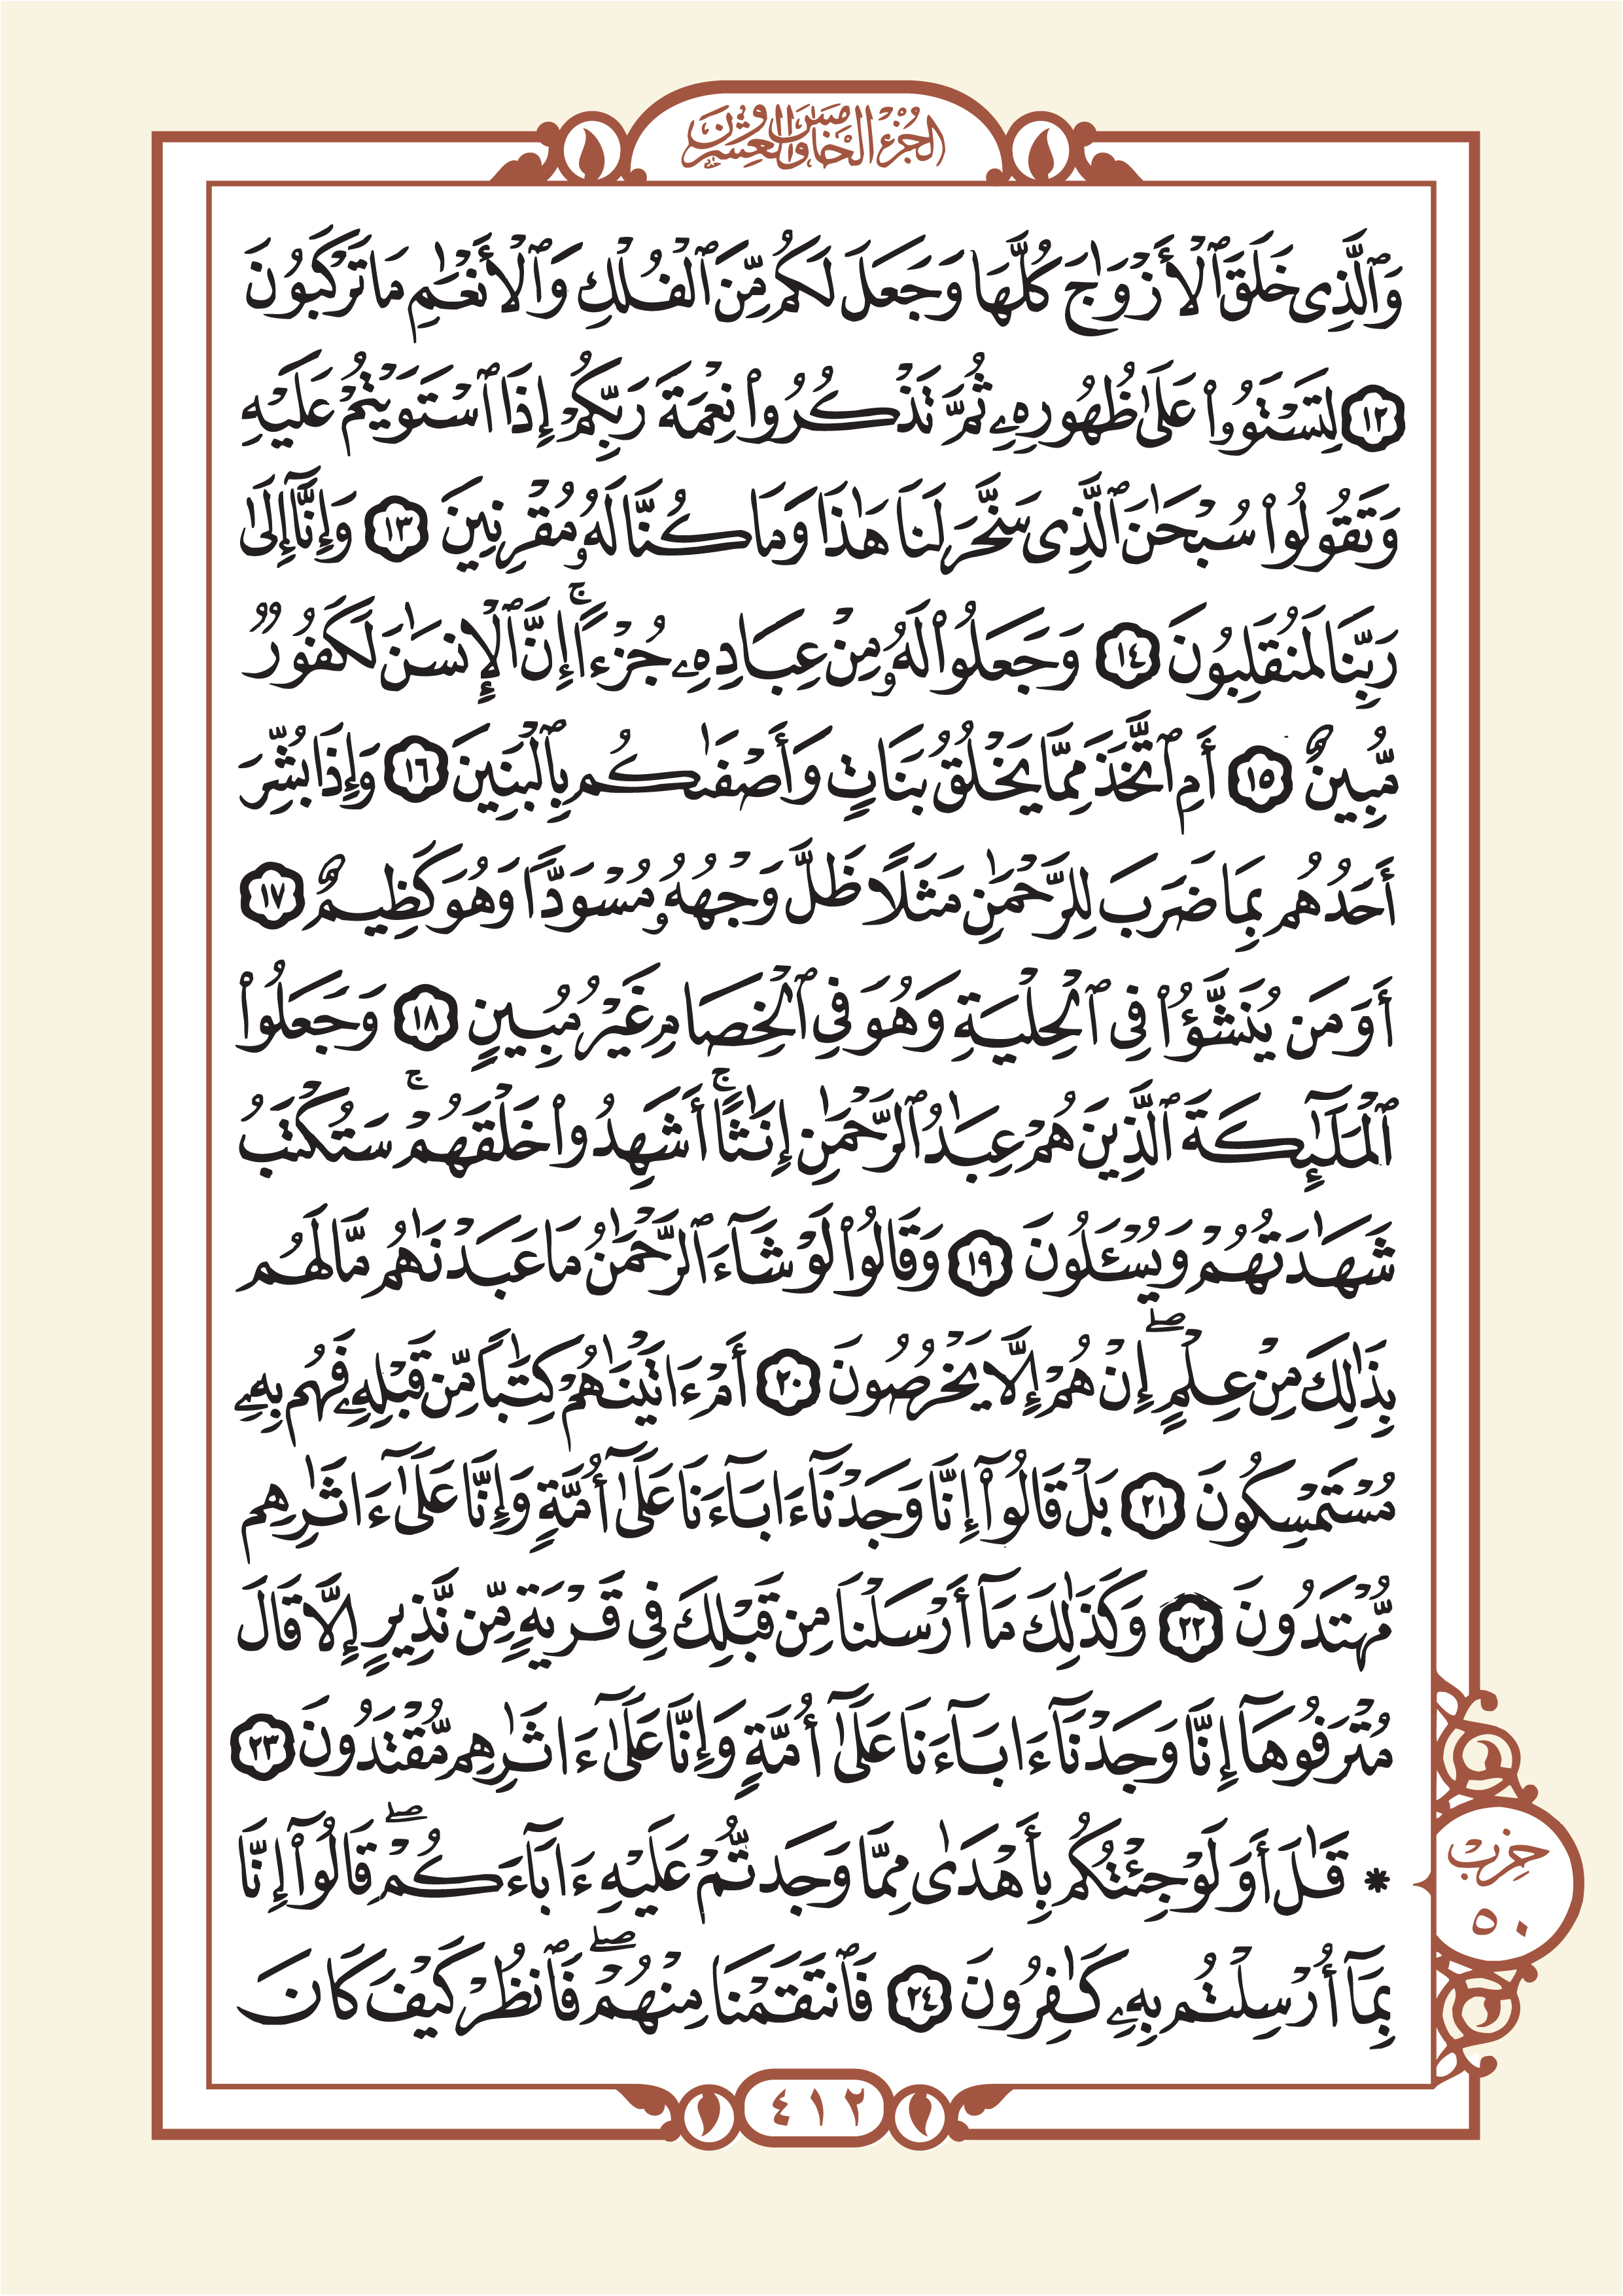 الجزء الخامس والعشرون
وَٱلَّذِى خَلَقَ ٱلْأَزْوَٰجَ كُلَّهَا وَجَعَلَ لَكُم مِّنَ ٱلْفُلْكِ وَٱلْأَنْعَٰمِ مَا تَرْكَبُونَ
١٢ لِتَسْتَوُۥا۟ عَلَىٰ ظُهُورِهِۦ ثُمَّ تَذْكُرُوا۟ نِعْمَةَ رَبِّكُمْ إِذَا ٱسْتَوَيْتُمْ عَلَيْهِ
وَتَقُولُوا۟ سُبْحَٰنَ ٱلَّذِى سَخَّرَ لَنَا هَٰذَا وَمَا كُنَّا لَهُۥ مُقْرِنِينَ ١٣ وَإِنَّآ إِلَىٰ
رَبِّنَا لَمُنقَلِبُونَ ١٤ وَجَعَلُوا۟ لَهُۥ مِنْ عِبَادِهِۦ جُزْءًا ۚ إِنَّ ٱلْإِنسَٰنَ لَكَفُورٌ
مُّبِينٌ ١٥ أَمِ ٱتَّخَذَ مِمَّا يَخْلُقُ بَنَاتٍ وَأَصْفَىٰكُم بِٱلْبَنِينَ ١٦ وَإِذَا بُشِّرَ
أَحَدُهُم بِمَا ضَرَبَ لِلرَّحْمَٰنِ مَثَلًا ظَلَّ وَجْهُهُۥ مُسْوَدًّا وَهُوَ كَظِيمٌ ١٧
أَوَمَن يُنَشَّؤُا۟ فِى ٱلْحِلْيَةِ وَهُوَ فِى ٱلْخِصَامِ غَيْرُ مُبِينٍ ١٨ وَجَعَلُوا۟
ٱلْمَلَٰٓئِكَةَ ٱلَّذِينَ هُمْ عِبَٰدُ ٱلرَّحْمَٰنِ إِنَٰثًا ۚ أَشَهِدُوا۟ خَلْقَهُمْ ۚ سَتُكْتَبُ
شَهَٰدَتُهُمْ وَيُسْـَٔلُونَ ١٩ وَقَالُوا۟ لَوْ شَآءَ ٱلرَّحْمَٰنُ مَا عَبَدْنَٰهُم مَّا لَهُم
بِذَٰلِكَ مِنْ عِلْمٍ ۖ إِنْ هُمْ إِلَّا يَخْرُصُونَ ٢٠ أَمْ ءَاتَيْنَٰهُمْ كِتَٰبًا مِّن قَبْلِهِۦ فَهُم بِهِۦ
مُسْتَمْسِكُونَ ٢١ بَلْ قَالُوٓا۟ إِنَّا وَجَدْنَآ ءَابَآءَنَا عَلَىٰٓ أُمَّةٍ وَإِنَّا عَلَىٰٓ ءَاثَٰرِهِم
مُّهْتَدُونَ ٢٢ وَكَذَٰلِكَ مَآ أَرْسَلْنَا مِن قَبْلِكَ فِى قَرْيَةٍ مِّن نَّذِيرٍ إِلَّا قَالَ
مُتْرَفُوهَآ إِنَّا وَجَدْنَآ ءَابَآءَنَا عَلَىٰٓ أُمَّةٍ وَإِنَّا عَلَىٰٓ ءَاثَٰرِهِم مُّقْتَدُونَ ٢٣
* قَٰلَ أَوَلَوْ جِئْتُكُم بِأَهْدَىٰ مِمَّا وَجَدتُّمْ عَلَيْهِ ءَابَآءَكُمْ ۖ قَالُوٓا۟ إِنَّا
بِمَآ أُرْسِلْتُم بِهِۦ كَٰفِرُونَ ٢٤ فَٱنتَقَمْنَا مِنْهُمْ ۖ فَٱنظُرْ كَيْفَ كَانَ
حزب
٥٠
٤١٢